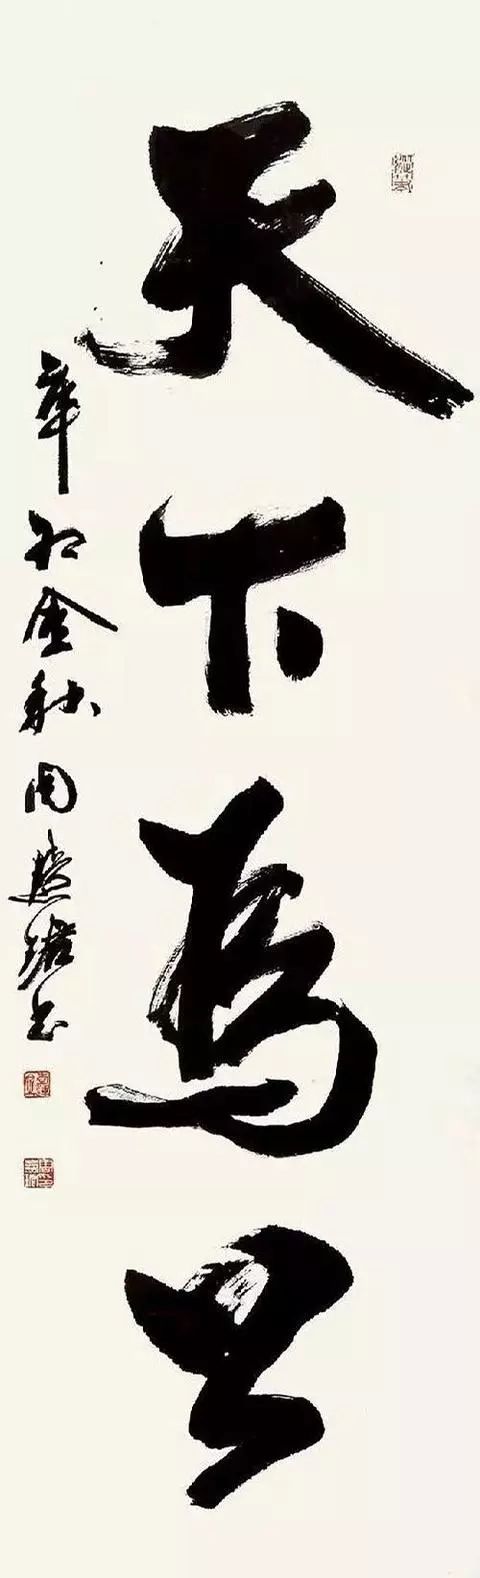 天下為公
辛卯金秋周慧珺书